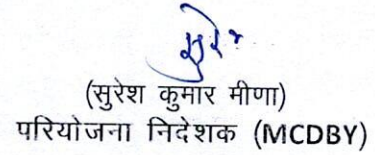 (सुरेश कुमार मीणा)
परियोजना निदेशक (MCDBY)